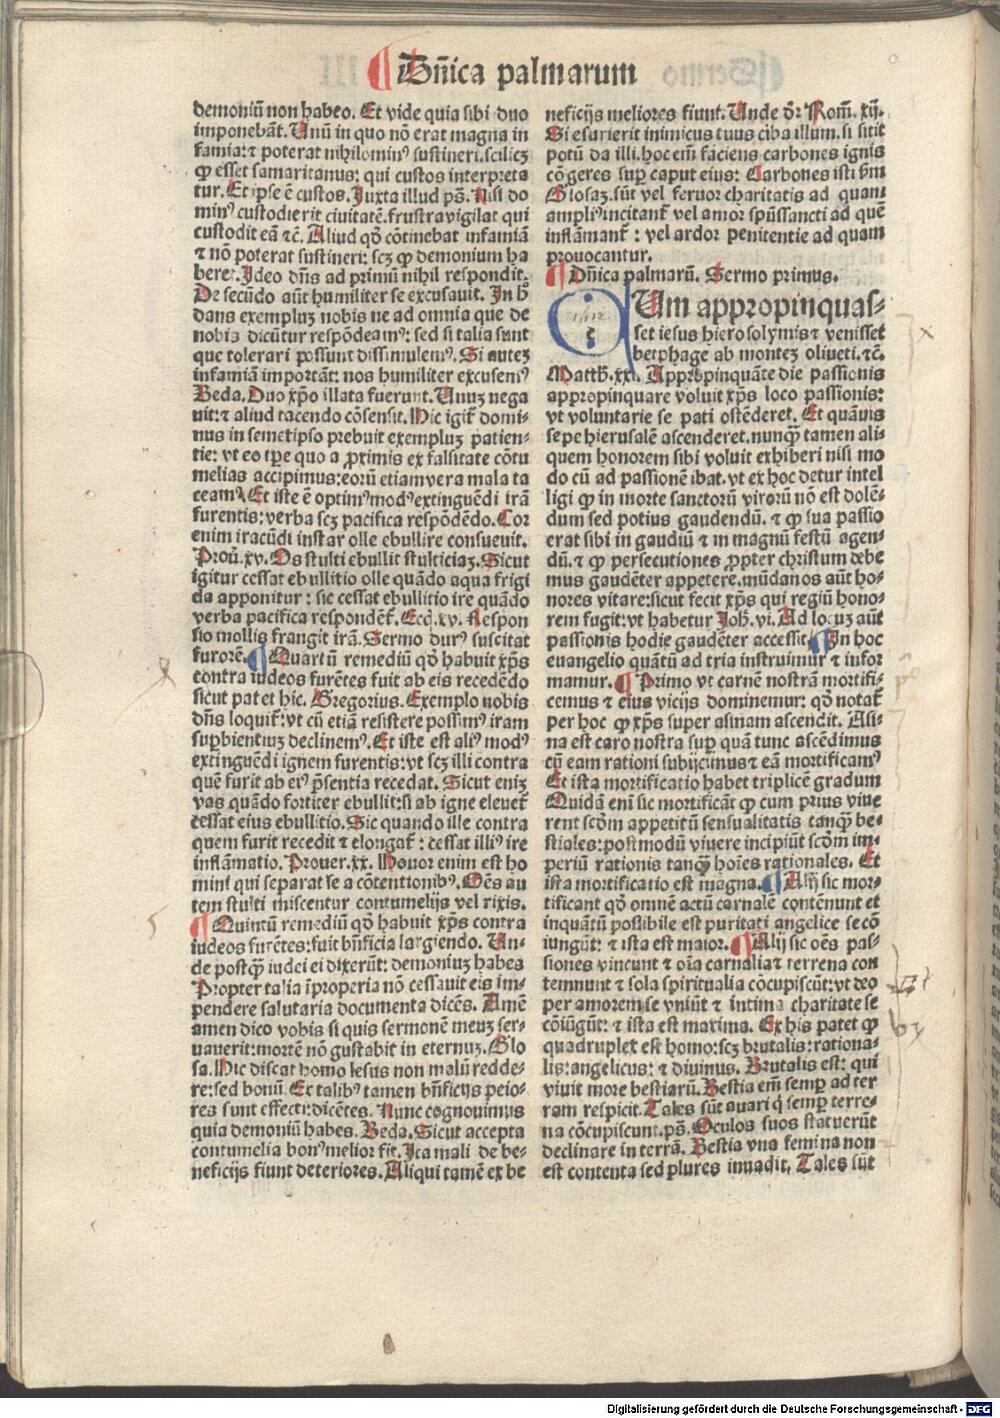 ¶ Dñica palmarum
demoniũ non habeo. Et vide quia sibi duo
imponebãt. Unũ in quo nõ erat magna in
famia: ⁊ poterat nihilominꝰ sustineri. scilicꝫ
ꝙ esset samaritanus: qui custos interpreta
tur. Et ipse ẽ custos. Juxta illud pš. Nisi do
minꝰ custodierit ciuitatẽ. frustra vigilat qui
custodit eã ⁊c̃. Aliud qđ cõtinebat infamiã
⁊ nõ poterat sustineri: scꝫ ꝙ demonium ha
bere. Ideo dñs ad primũ nihil respondit.
De secũdo aũt humiliter se excusauit. In h̾
dans exempluꝫ nobis ne ad omnia que de
nobis dicũtur respõdeamꝰ: sed si talia sunt
que tolerari possunt dissimulemꝰ. Si auteꝫ
infamiã importãt: nos humiliter excusemꝰ
Beda. Duo xp̃o illata fuerunt. Unuꝫ nega
uit: ⁊ aliud tacendo cõsensit. Hic igit̃ domi-
nus in semetipso prebuit exempluꝫ patien-
tie: vt eo tp̃e quo a ꝓximis ex falsitate cõtu
melias accipimus: eorũ etiam vera mala ta
ceamꝰ. Et iste ẽ optimꝰ modꝰ extinguẽdi irã
furentis: verba scꝫ pacifica respõdẽdo. Cor
enim iracũdi instar olle ebullire consueuit.
Prou̾. xv. Os stulti ebullit stulticiaꝫ. Sicut
igitur cessat ebullitio olle quãdo aqua frigi
da apponitur: sic cessat ebullitio ire quãdo
verba pacifica respondẽt̃. Eccĩ. xv. Respon
sio mollis frangit irã. Sermo durꝰ suscitat
furorẽ. ¶ Quartũ remediũ qđ habuit xp̃s
contra iudeos furẽtes fuit ab eis recedẽdo
sicut patet hic. Gregorius. Exemplo nobis
dñs loquit̃: vt cũ etiã resistere possimꝰ iram
suꝑbientiuꝫ declinemꝰ. Et iste est aliꝰ modꝰ
extinguẽdi ignem furentis: vt scꝫ illi contra
quẽ furit ab eiꝰ p̃sentia recedat. Sicut eniꝫ
vas quãdo fortiter ebullit: si ab igne eleuet̃
cessat eius ebullitio. Sic quando ille contra
quem furit recedit ⁊ elongat̃: cessat illiꝰ ire
inflãmatio. Prouer. xx. Honor enim est ho
mini qui separat se a cõtentionibꝰ. Oẽs au
tem stulti miscentur contumelijs vel rixis.
¶ Quintũ remediũ qđ habuit xp̃s contra
iudeos furẽtes: fuit bñficia largiendo. Un-
de postꝙ̃ iudei ei dixerũt: demoniuꝫ habes
Propter talia ĩproperia nõ cessauit eis im-
pendere salutaria documenta dicẽs. Amẽ
amen dico vobis si quis sermonẽ meuꝫ ser-
uauerit: mortẽ nõ gustabit in eternuꝫ. Glo
sa. Hic discat homo Iesus non malũ redde-
re: sed bonũ. Ex talibꝰ tamen bñficijs peio-
res sunt effecti: dicẽtes. Nunc cognouimus
quia demoniũ habes. Beda. Sicut accepta
contumelia bonꝰ melior fit. Ita mali de be-
neficijs fiunt deteriores. Aliqui tamẽ ex be
neficijs meliores fiunt. Unde dr̃: Rom̃. xij.
Si esurierit inimicus tuus ciba illum. si sitit
potũ da illi. hoc em̃ faciens carbones ignis
cõgeres suꝑ caput eius: Carbones isti ẜm
Glosaꝫ. sũt vel feruor charitatis ad quam
ampliꝰ incitant̃ vel amor spũssancti ad quẽ
inflãmant̃: vel ardor penitentie ad quam
prouocantur.
¶ Dñica palmarũ. Sermo primus.
Um appropinquas-
set iesus hierosolymis ⁊ venisset
betphage ab monteꝫ oliueti. ⁊c̃.
Matth̾. xxi. Appropinquãte die passionis
appropinquare voluit xp̃s loco passionis:
vt voluntarie se pati ostẽderet. Et quãuis
sepe hierusalẽ ascenderet. nunꝙ̃ tamen ali-
quem honorem sibi voluit exhiberi nisi mo
do cũ ad passionẽ ibat. vt ex hoc detur intel
ligi ꝙ in morte sanctorũ virorũ nõ est dolẽ-
dum sed potius gaudendũ. ⁊ ꝙ sua passio
erat sibi in gaudiũ ⁊ in magnũ festũ agen-
dũ. ⁊ ꝙ persecutiones ꝓpter christum debe
mus gaudẽter appetere. mũdanos aũt ho-
nores vitare: sicut fecit xp̃s qui regiũ hono-
rem fugit: vt habetur Joh̾. vi. Ad locuꝫ aũt
passionis hodie gaudẽter accessit. ¶ In hoc
euangelio quãtũ ad tria instruimur ⁊ infor
mamur. ¶ Primo vt carnẽ nostrã mortifi-
cemus ⁊ eius vicijs dominemur: qđ notat̃
per hoc ꝙ xp̃s super asinam ascendit. Asi-
na est caro nostra suꝑ quã tunc ascẽdimus
cũ eam rationi subijcimus ⁊ eã mortificamꝰ
Et ista mortificatio habet triplicẽ gradum
Quidã eni̾ sic mortificãt ꝙ cum prius viue
rent scđm appetitũ sensualitatis tanꝙ̃ be-
stiales: postmodũ viuere incipiũt scđm im-
periũ rationis tanꝙ̃ hoĩes rationales. Et
ista mortificatio est magna. ¶ Alij sic mor-
tificant qđ omnẽ actũ carnalẽ contẽnunt et
inquãtũ possibile est puritati angelice se cõ
iungũt: ⁊ ista est maior. ¶ Alij sic oẽs pas-
siones vincunt ⁊ oĩa carnalia ⁊ terrena con
temnunt ⁊ sola spiritualia cõcupiscũt: vt deo
per amorem se vniũt ⁊ intima charitate se
cõiũgũt: ⁊ ista est maxima. Ex his patet ꝙ
quadruplex est homo: scꝫ brutalis: rationa-
lis: angelicus: ⁊ diuinus. Brutalis est: qui
viuit more bestiarũ. Bestia em̃ semꝑ ad ter
ram respicit. Tales sũt auari q̇ semꝑ terre-
na cõcupiscunt. pš. Oculos suos statuerũt
declinare in terrã. Bestia vna femina non
est contenta sed plures inuadit. Tales sũt
Digitalisierung gefördert durch die Deutsche Forschungsgemeinschaft - DFG